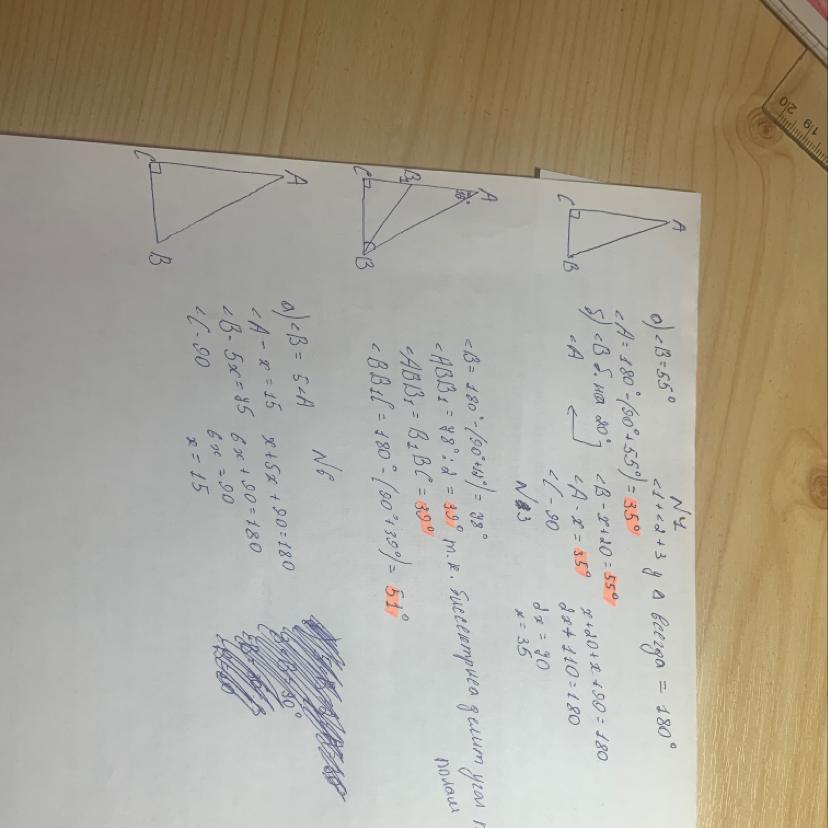 N4
<1+<2+3 у Δ всегда = 180°
а) <B=55°
<A=180°-(90°+55°)=35°
б) <B б. на 20°
<A
<B-x+20=55°
<A-x=35°
<C-90
x+20+x+90=180
2x+110=180
2x=70
x=35
A
C
B
N3
<B=180°-(90°+12°)=78°
<ABB₁=78°:2=39° т.к. биссектриса делит угол
полам
<ABB₁=B₁BC=39°
<BB₁C=180°-(90°+39°)=51°
A
B₁
C
B
N6
а) <B=5<A
<A-x=15
<B-5x=75
<C-90
x+5x+90=180
6x+90=180
6x=90
x=15
A
C
B
20
19